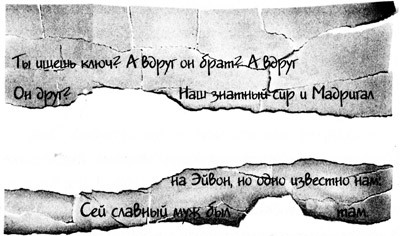 Ты ищешь ключ? А вдруг он брат? А вдруг
Он друг? Наш знатный сир и Мадригал
на Эйвон, но одно известно нам:
Сей славный муж был там.